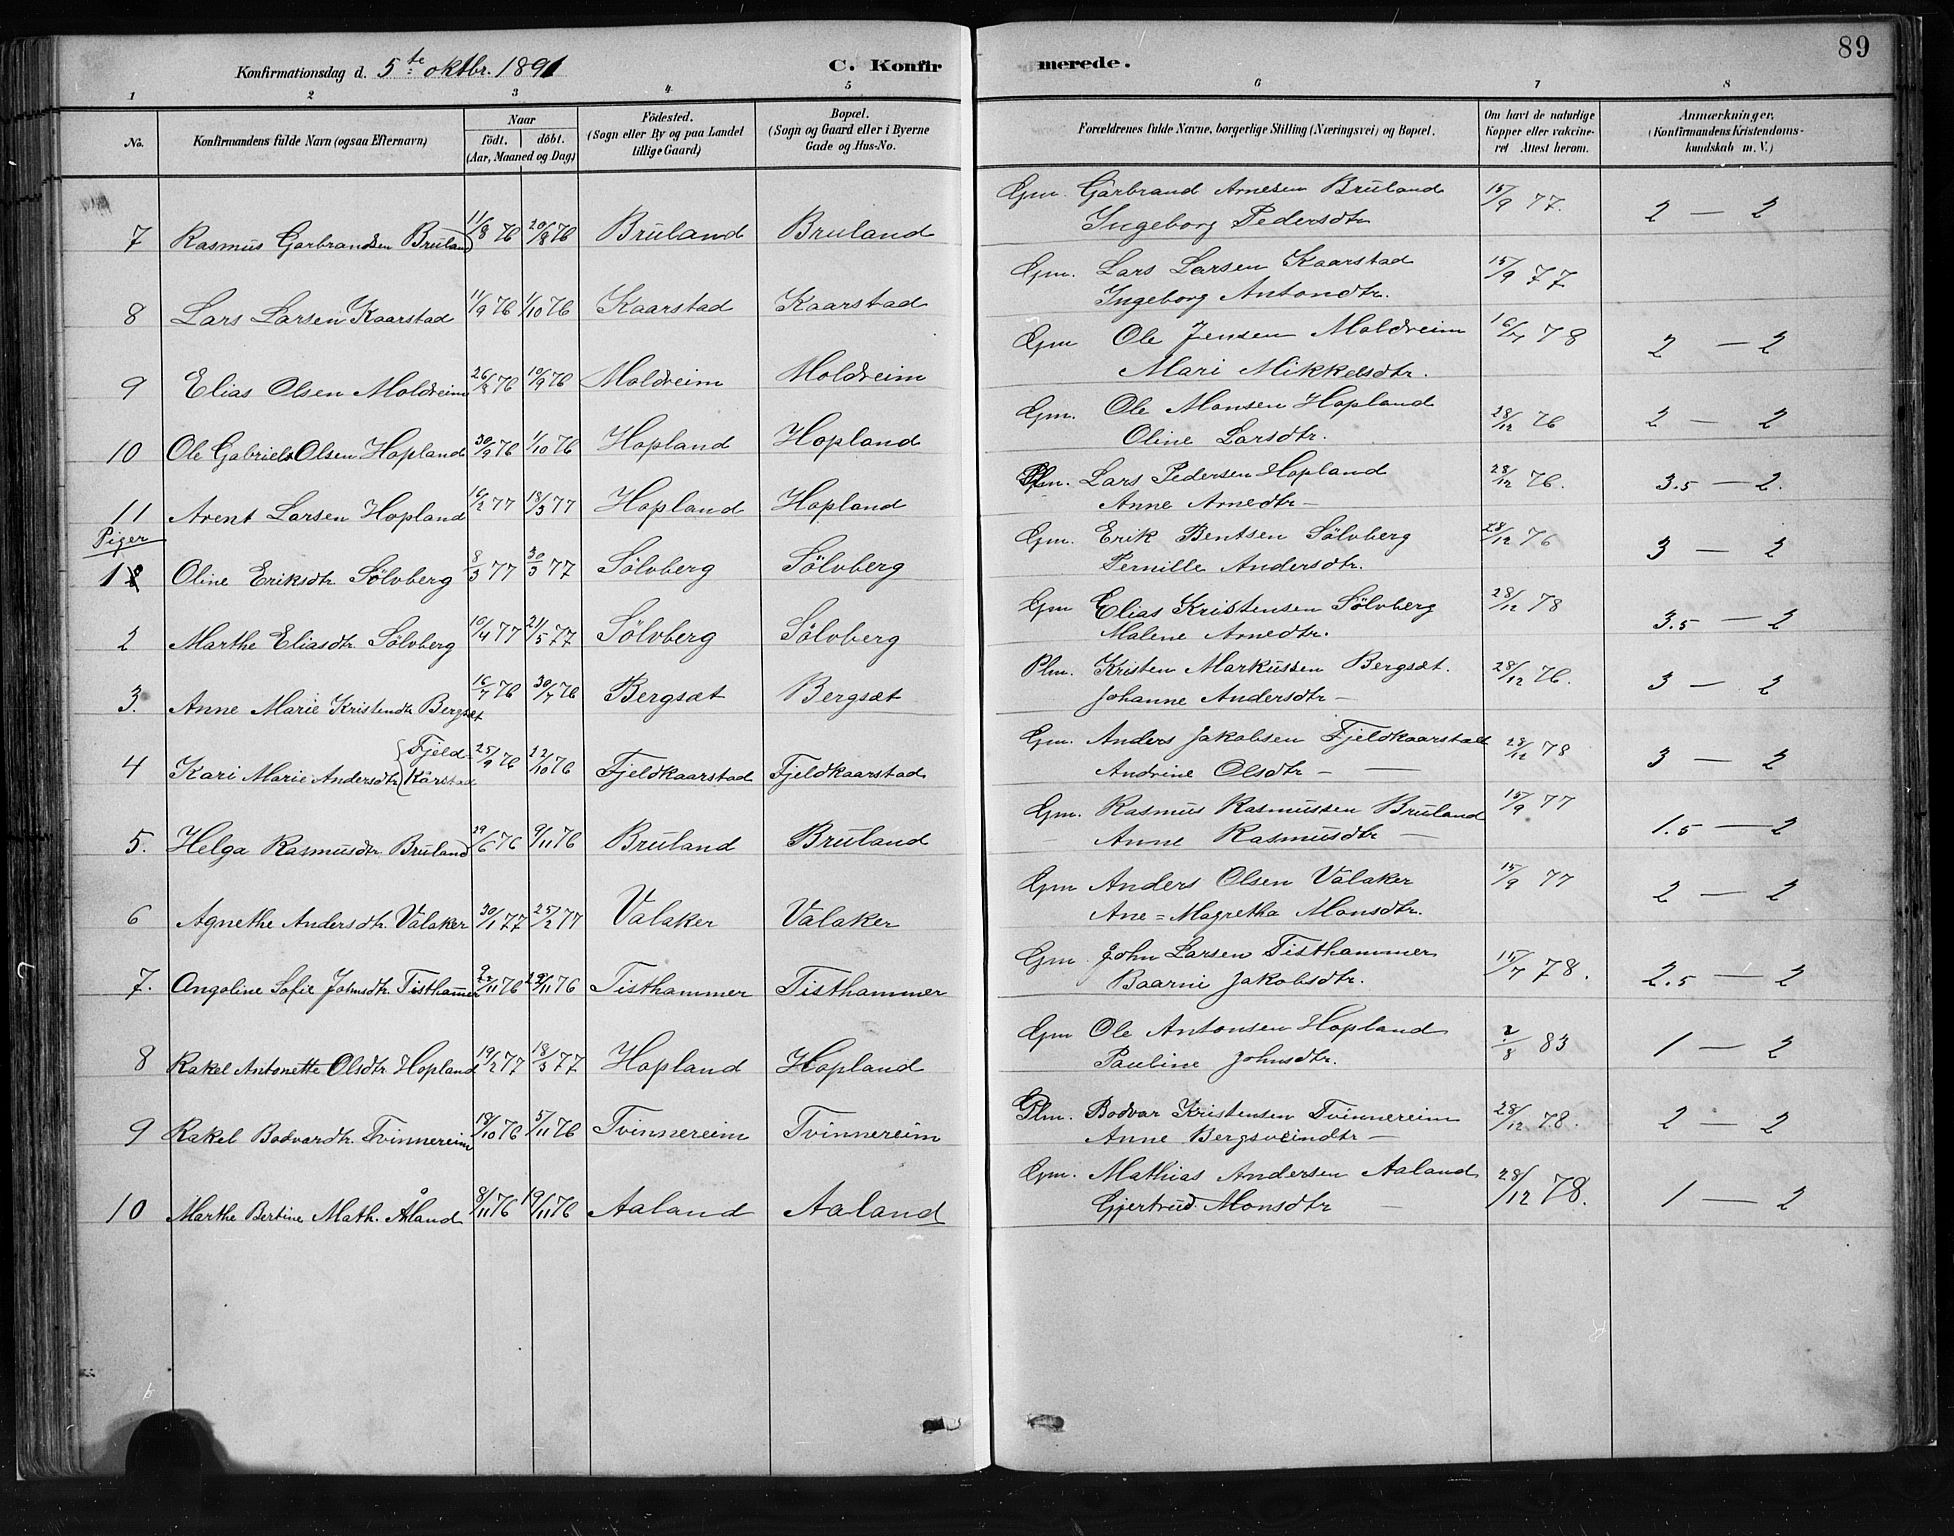 89
Konfirmationsdag d. 5te oktbr. 1891 C. Konfirmerede.
1 2 3 4 5 6 7 8
No. Konfirmandens fulde Navn (ogsaa Efternavn) Naar födt. döbt. (Aar, Maaned og Dag) Födested. (Sogn eller By og paa Landet tillige Gaard) Bopæl. (Sogn og Gaard eller i Byerne Gade og Hus-No. Forældrenes fulde Navne, borgerlige Stilling (Næringsvei) og Bopæl. Om havt de naturlige Kopper eller vakcineret Attest herom. Anmærkninger. (Konfirmandens Kristendomskundskab m. V.)
7 Rasmus Garbrandsen Bruland 11/8 76 20/8 76 Bruland Bruland Gm. Garbrand Arnesen Bruland 15/9 77. 2 — 2
Ingeborg Pedersdtr
8 Lars Larsen Kaarstad 11/9 76 1/10 76 Kaarstad Kaarstad Gm. Lars Larsen Kaarstad 15/9 77
Ingeborg Antondtr.
9 Elias Olsen Moldreim 26/8 76 10/9 76 Moldreim Moldreim Gm Ole Jensen Moldreim 16/7 78 2 — 2
Mari Mikkelsdtr.
10 Ole Gabriels Olsen Hopland 30/9 76 1/10 76 Hopland Hopland Gm. Ole Monsen Hopland 28/12 76 2 — 2
Oline Larsdtr.
11 Arent Larsen Hopland 16/2 77 18/3 77 Hopland Hopland Plm. Lars Pedersen Hopland 28/12 76. 3.5 — 2.
Anne Arnedtr —
Piger
1 Oline Eriksdtr Sölvberg 8/3 77 30/3 77 Sölvberg Sölvberg Gm. Erik Bentsen Sölvberg 28/12 76 3 — 2
Pernille Andersdtr.
2 Marthe Eliasdtr. Sölvberg 10/4 77 21/5 77 Sölvberg Sölvberg Gm Elias Kristensen Sölvberg 28/12 78 3.5 — 2
Malene Arnedtr.
3. Anne Marie Kristendtr Bergsæt 16/7 76 30/7 76 Bergsæt Bergsæt Plm. Kristen Markussen Bergsæt. 28/12 76. 3 — 2
Johanne Andersdtr —
4 Kari Marie Andersdtr Fjeld-Kårstad 25/9 76 22/10 76 Fjeldkaarstad Fjeldkaarstad Gm. Anders Jakobsen Fjeldkaarstad 28/12 78 3 — 2
Andrine Olsdtr —
5. Helga Rasmusdtr. Bruland 29/6 76 9/11 76 Bruland Bruland Gm. Rasmus Rasmussen Bruland 15/9 77 1.5 — 2
Anne Rasmusdtr —
6 Agnethe Andersdtr. Valaker 30/1 77 25/2 77 Valaker Valaker Gm Anders Olsen Valaker 15/9 77 2 — 2
Ane = Magretha Monsdtr.
7. Angoline Sofie Johnsdtr. Tisthammer /11 76 /11 76 Tisthammer Tisthammer Gm. John Larsen Tisthammer 15/7 78. 2.5 — 2
Baarni Jakobsdtr.
8 Rakel Antonette Olsdtr. Hopland 19/2 77 18/3 77 Hopland Hopland Gm Ole Antonsen Hopland 2/8 83 1 — 2
Pauline Johnsdtr.
9 Rakel Bodvardtr. Tvinnereim 19/10 76 5/11 76 Tvinnereim Tvinnereim Plm. Bodvar Kristensen Tvinnereim 28/12 78. 2 — 2
Anne Bergsveindtr —
10 Marthe Bertine Math. Åland 8/11 76 19/11 76 Aaland Aaland Gm. Mathias Andersen Aaland 28/12 78. 1 — 2
Gjertrud Monsdtr —